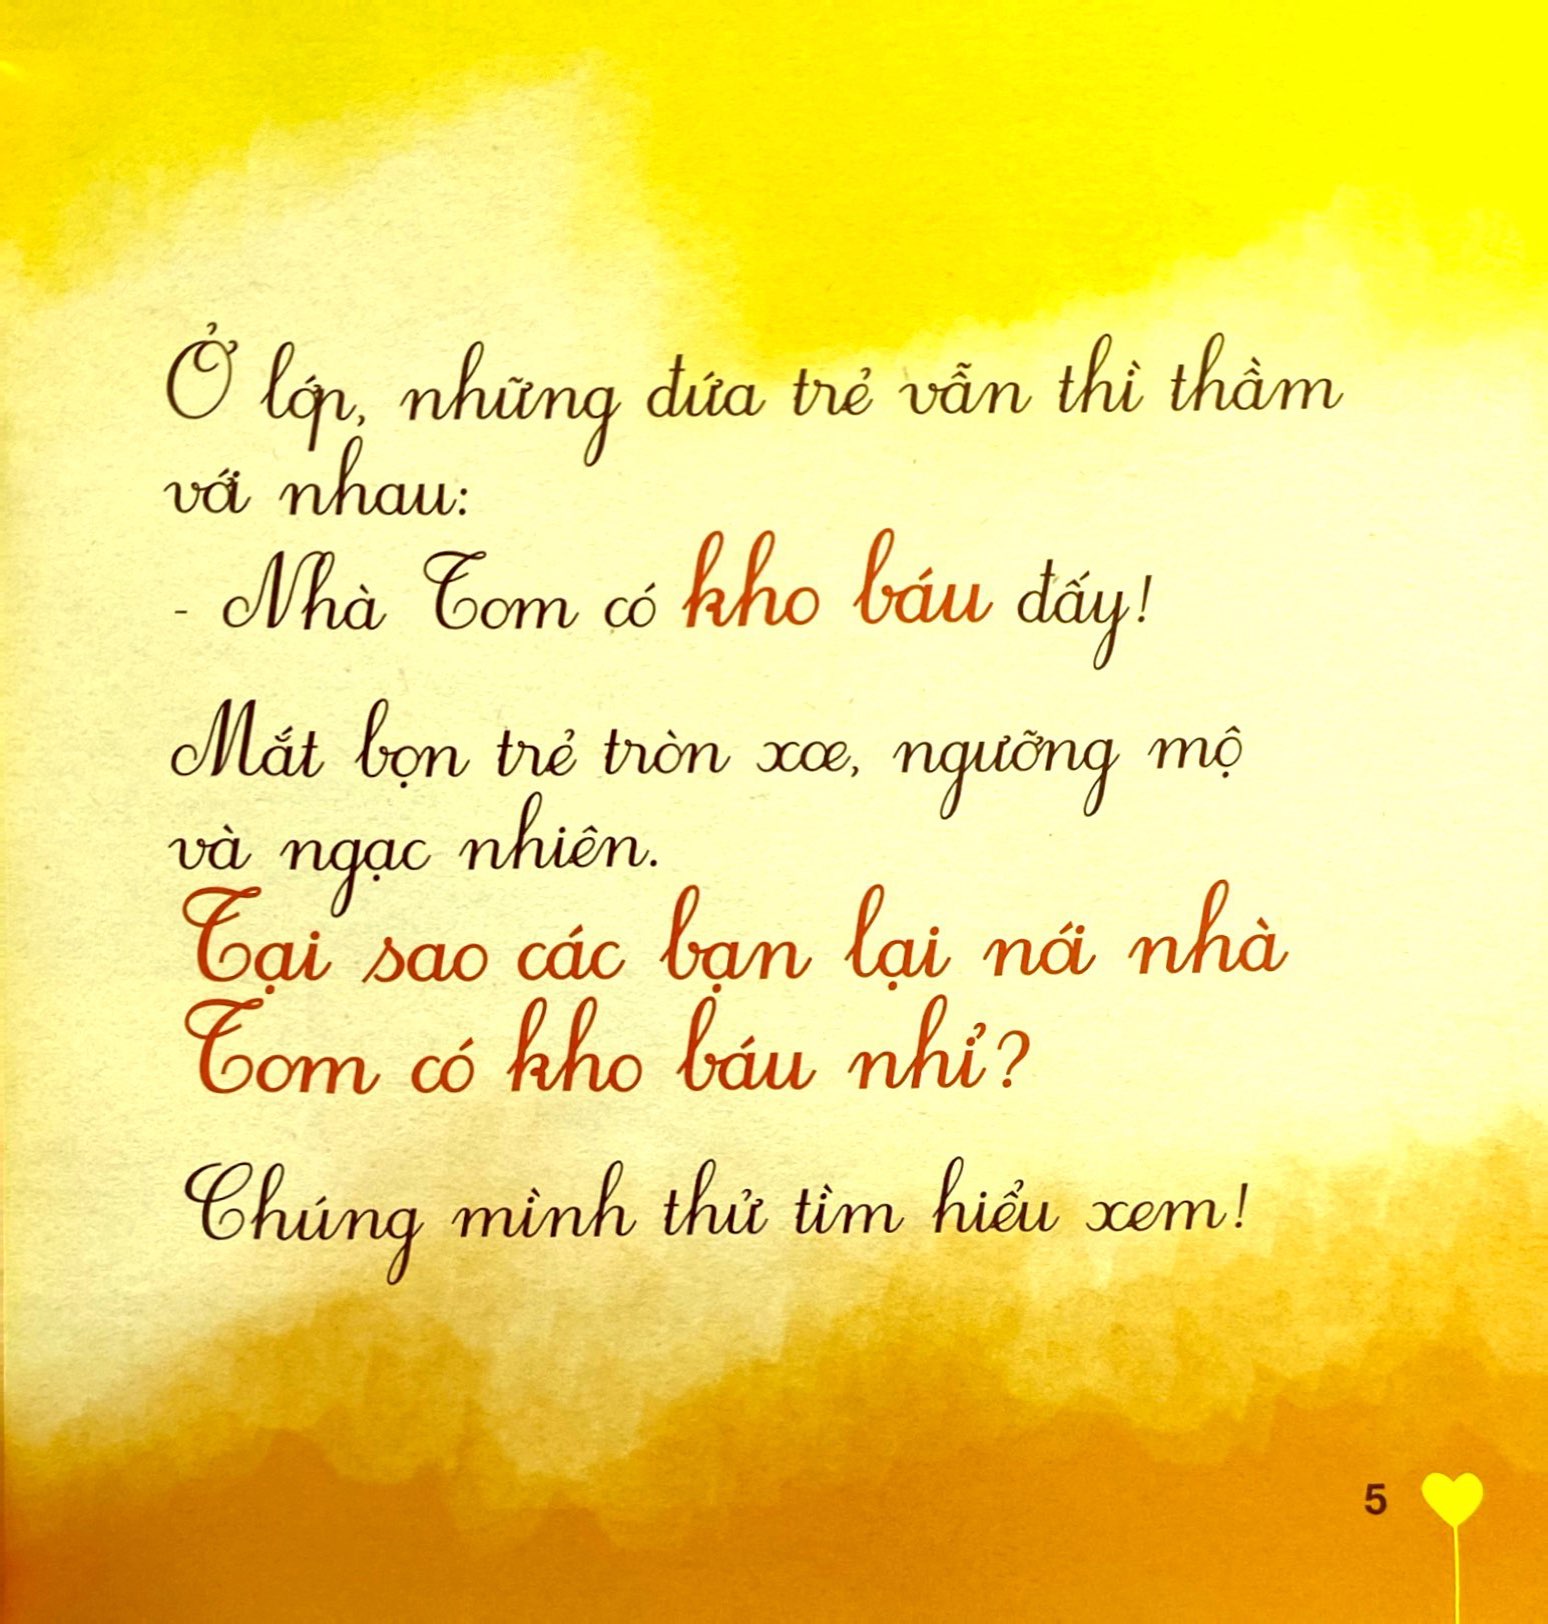 Ở lớp, những đứa trẻ vẫn thì thầm
với nhau:
- Nhà Tom có kho báu đấy!
Mắt bọn trẻ tròn xoe, ngưỡng mộ
và ngạc nhiên.
Tại sao các bạn lại nói nhà
Tom có kho báu nhỉ?
Chúng mình thử tìm hiểu xem!
5